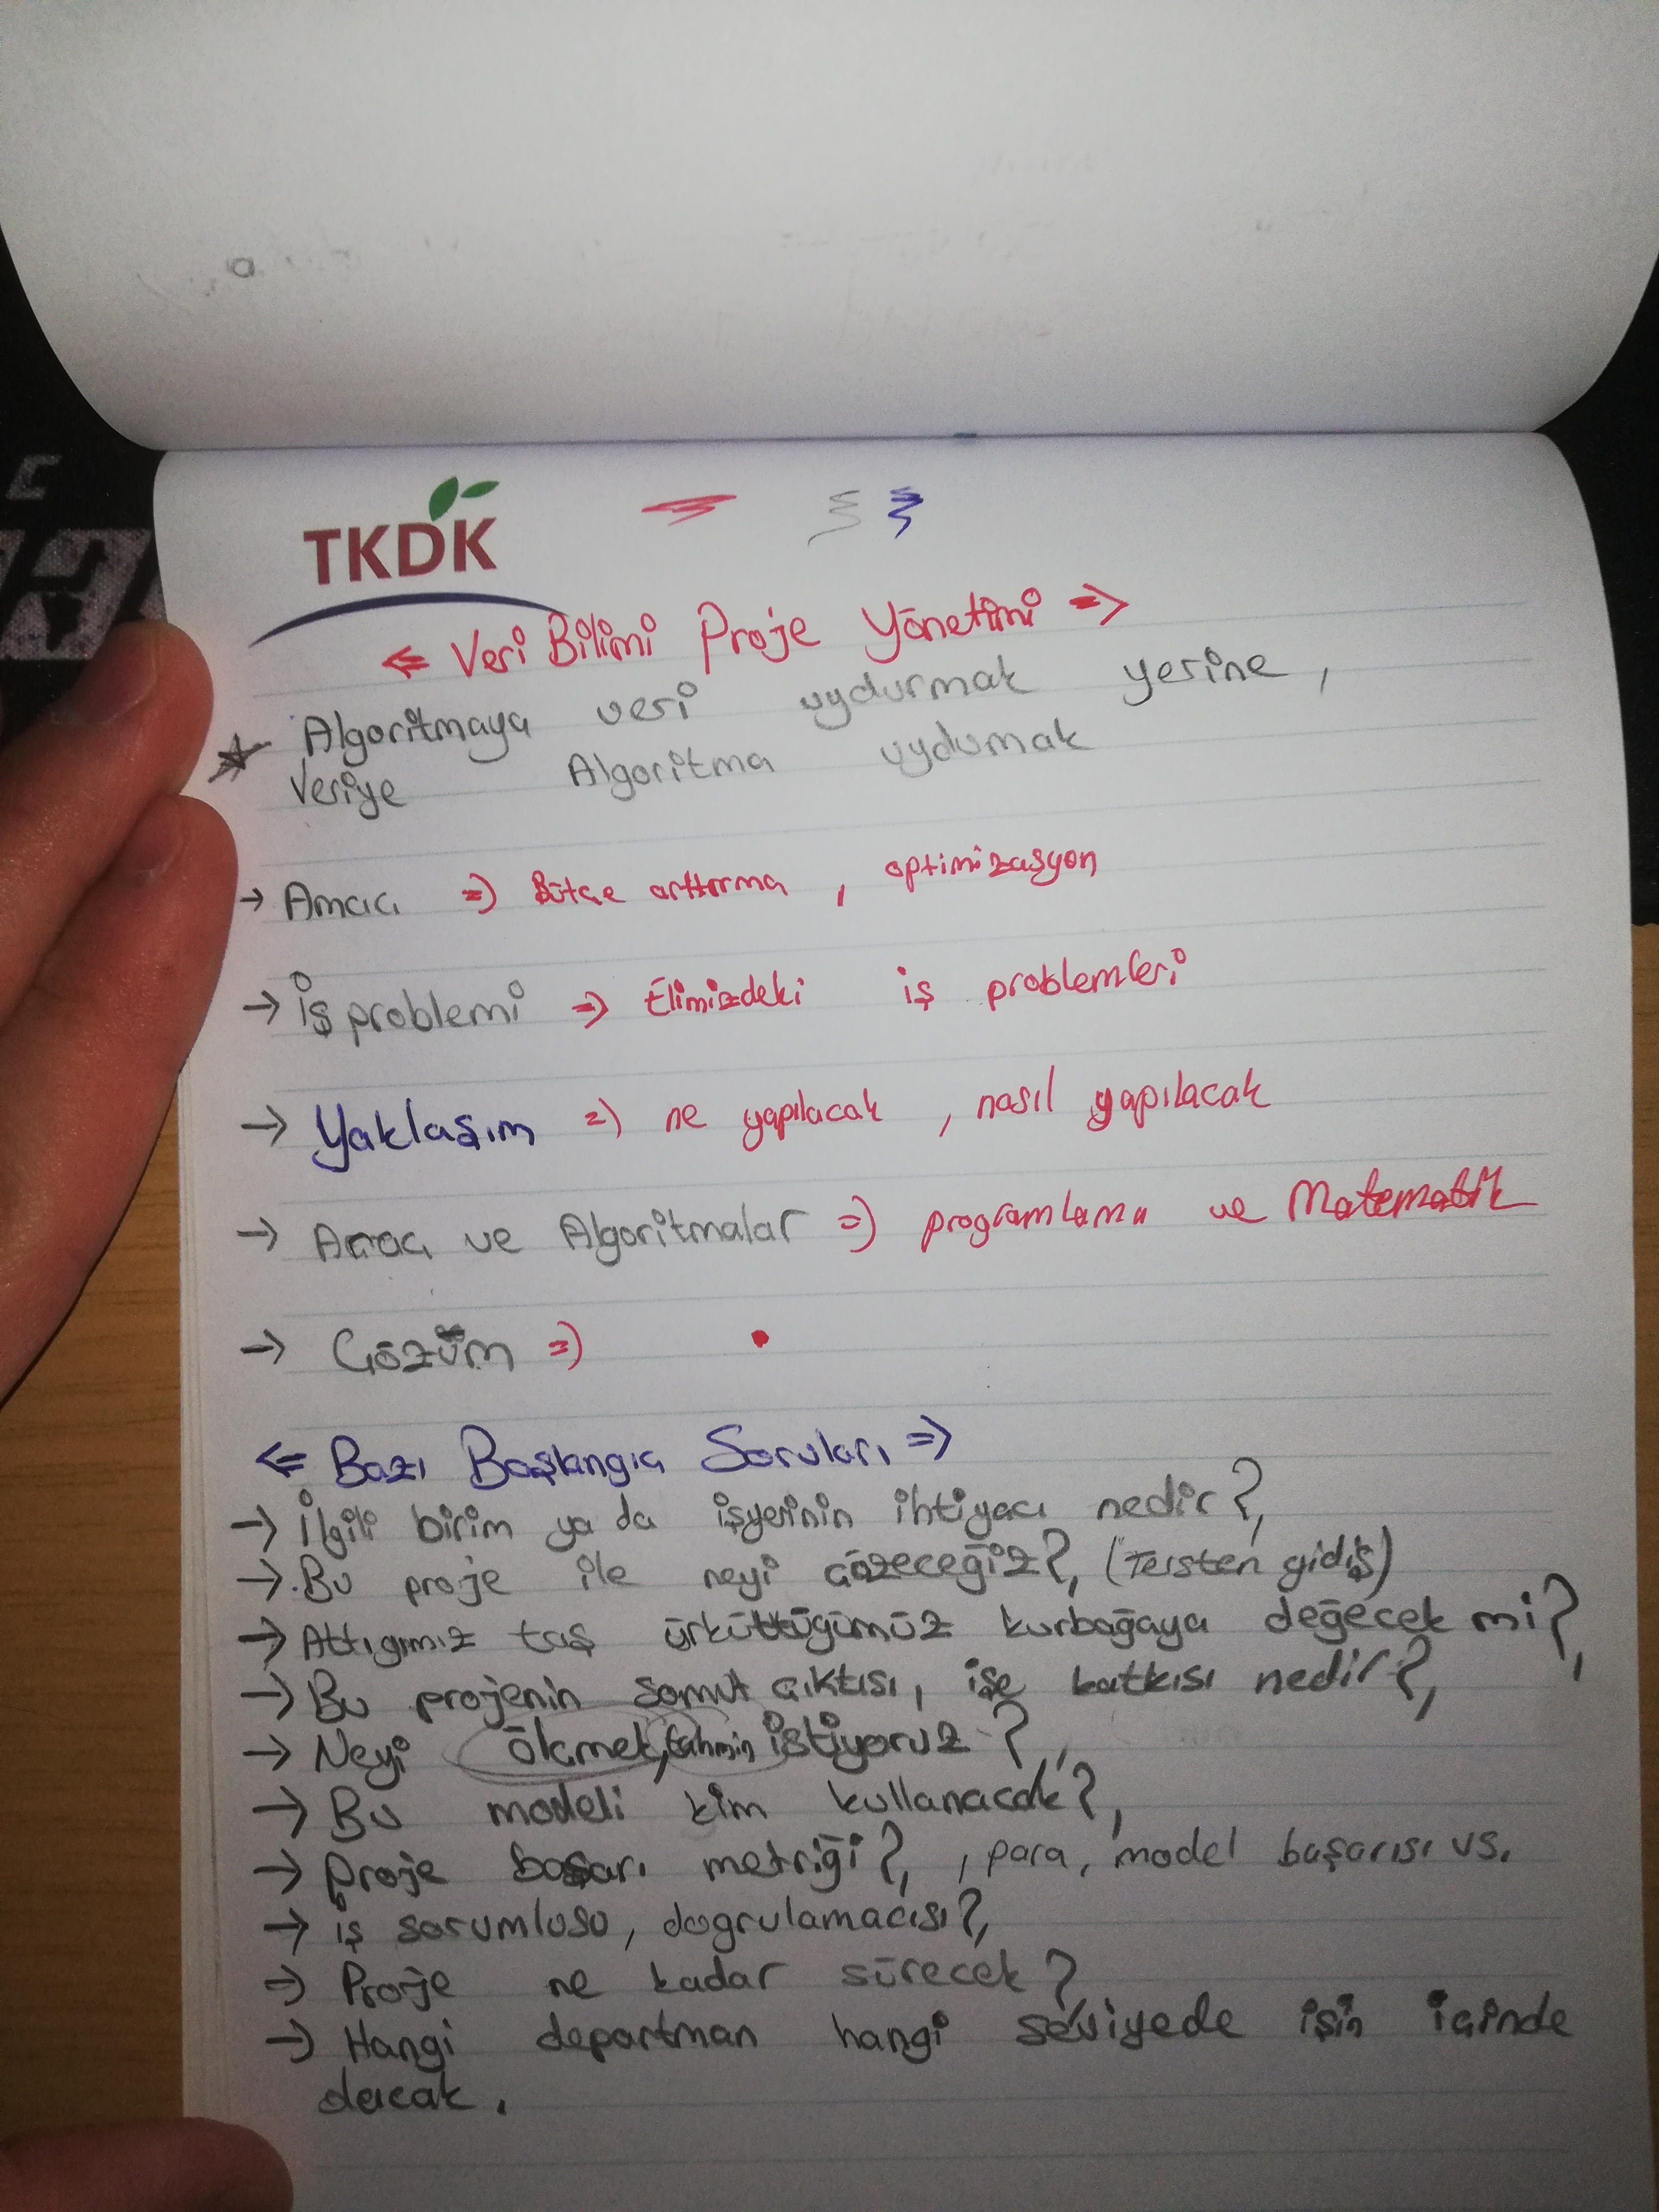 TKDK
<= Veri Bilimi Proje Yönetimi =>
* Algoritmaya veri uydurmak yerine,
Veriye Algoritma uydumak
→ Amacı => Bütçe arttırma, optimizasyon
→ iş problemi => Elimizdeki iş problemleri
→ Yaklaşım => ne yapılacak, nasıl yapılacak
→ Aracı ve Algoritmalar => programlama ve Matematik
→ Çözüm =>
<= Bazı Başlangıç Soruları =>
→ İlgili birim ya da işyerinin ihtiyacı nedir?,
→ Bu proje ile neyi çözeceğiz?, (Tersten gidiş)
→ Attıgımız taş ürküttüğümüz kurbağaya değecek mi?,
→ Bu projenin somut çıktısı, işe katkısı nedir?,
→ Neyi ölçmek, tahmin istiyoruz?,
→ Bu modeli kim kullanacak?,
→ Proje başarı metriği?, , para, model başarısı vs.
→ iş sorumlusu, dogrulamacısı?,
→ Proje ne kadar sürecek?
→ Hangi departman hangi seviyede işin içinde
olacak.